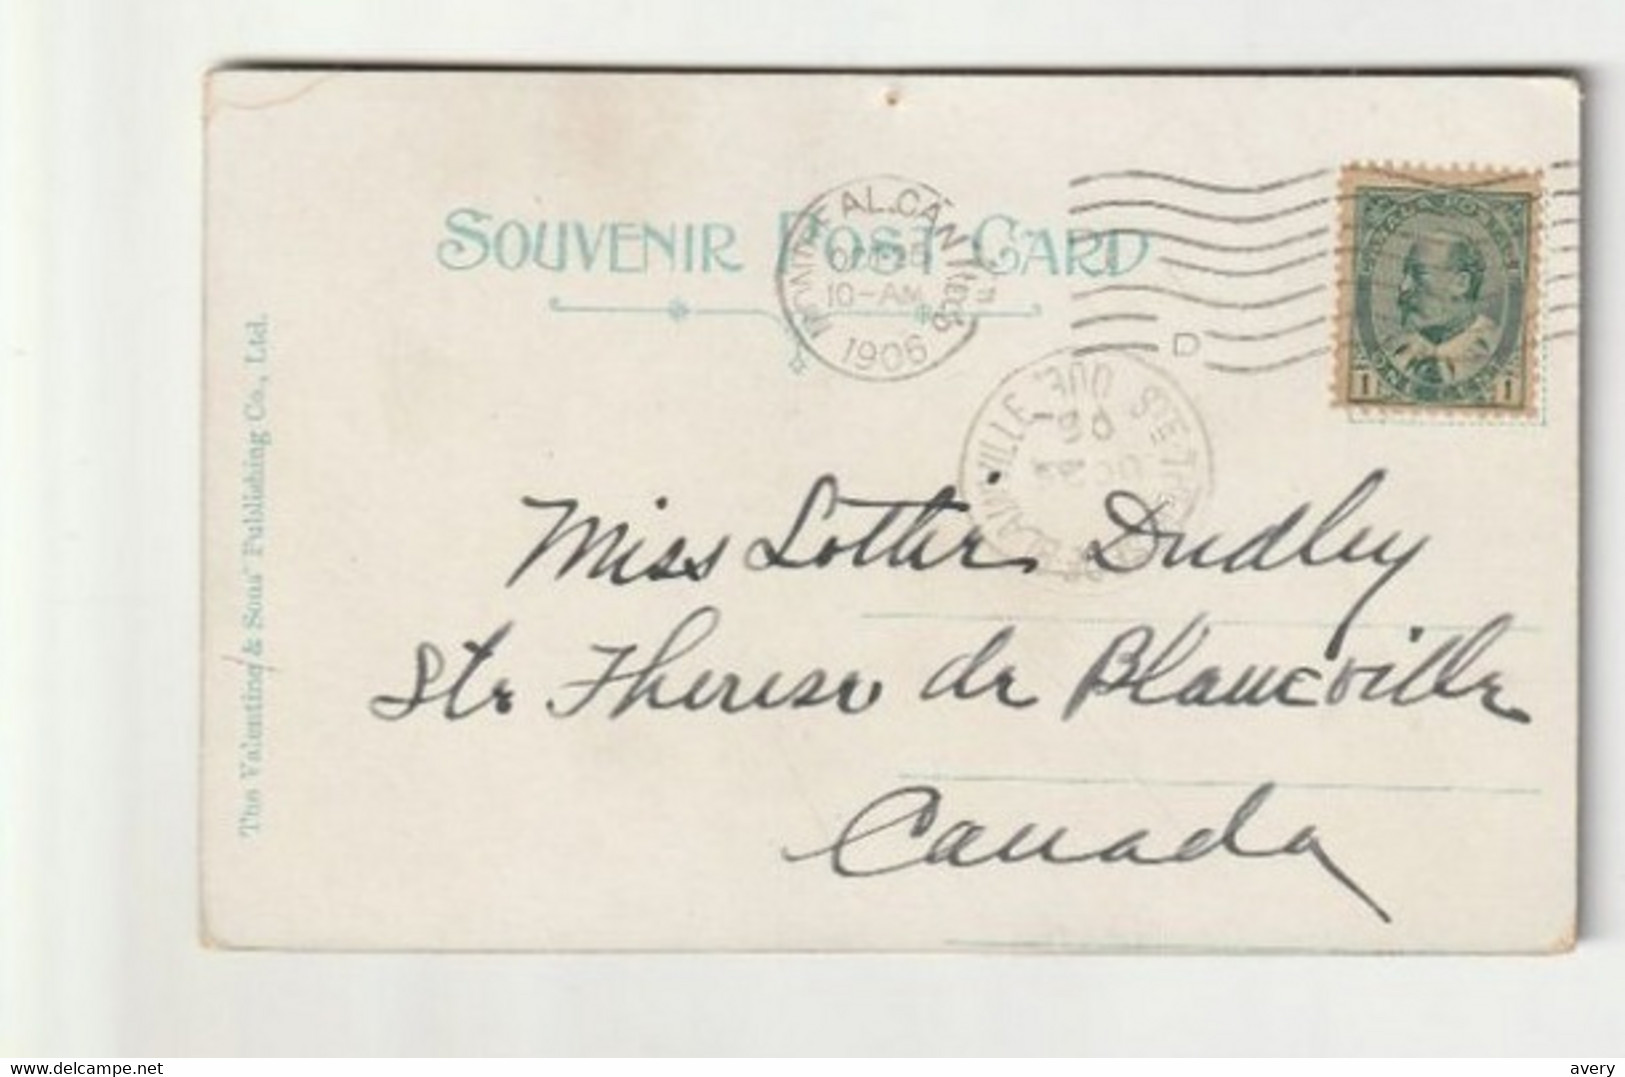 SOUVENIR POST CARD
MONTREAL. CAN
10-AM
1906
D
STE. THERESE DE BLAINVILLE, QUE.
06
CANADA POSTAGE
1 ONE CENT 1
Miss Lottie Dudley
Ste Therese de Blaneville
Canada
The Valentine & Sons' Publishing Co., Ltd.
www.delcampe.net
avery